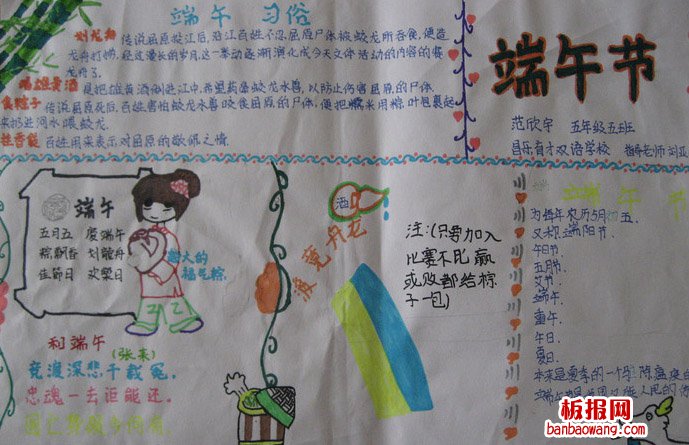 端午 习俗
划龙舟 传说屈原投江后,沿江百姓不忍屈原尸体被蛟龙所吞食,便造
龙舟打捞,经过漫长的岁月,这一举动逐渐演化成今天文体活动的内容的赛
龙舟了。
喝雄黄酒 是把雄黄酒倒进江中,希望药晕蛟龙水兽,以防止伤害屈原的尸体
食粽子 传说屈原死后,百姓害怕蛟龙水兽咬食屈原的尸体,便把糯米用粽叶包裹起
来扔进河水喂蛟龙。
挂香袋 百姓用来表示对屈原的敬佩之情.
端午节
范欣宇 五年级五班
昌乐育才双语学校 指导老师
端午
五月五 庆端午
粽飘香 划龍舟
佳節日 欢樂日
福气粽.
和端午
(张耒)
竞渡深悲千载冤,
忠魂一去讵能还.
国亡
酒
竞舟龙
注:(只要加入
比赛不比赢
或败都给粽
子一包)
端午节
为每年农历5月初五
又称端阳节.
午日节.
五月节.
艾节.
端午.
重午.
午日.
夏日.
本来是夏季的一个
板报网
banbaowang.com